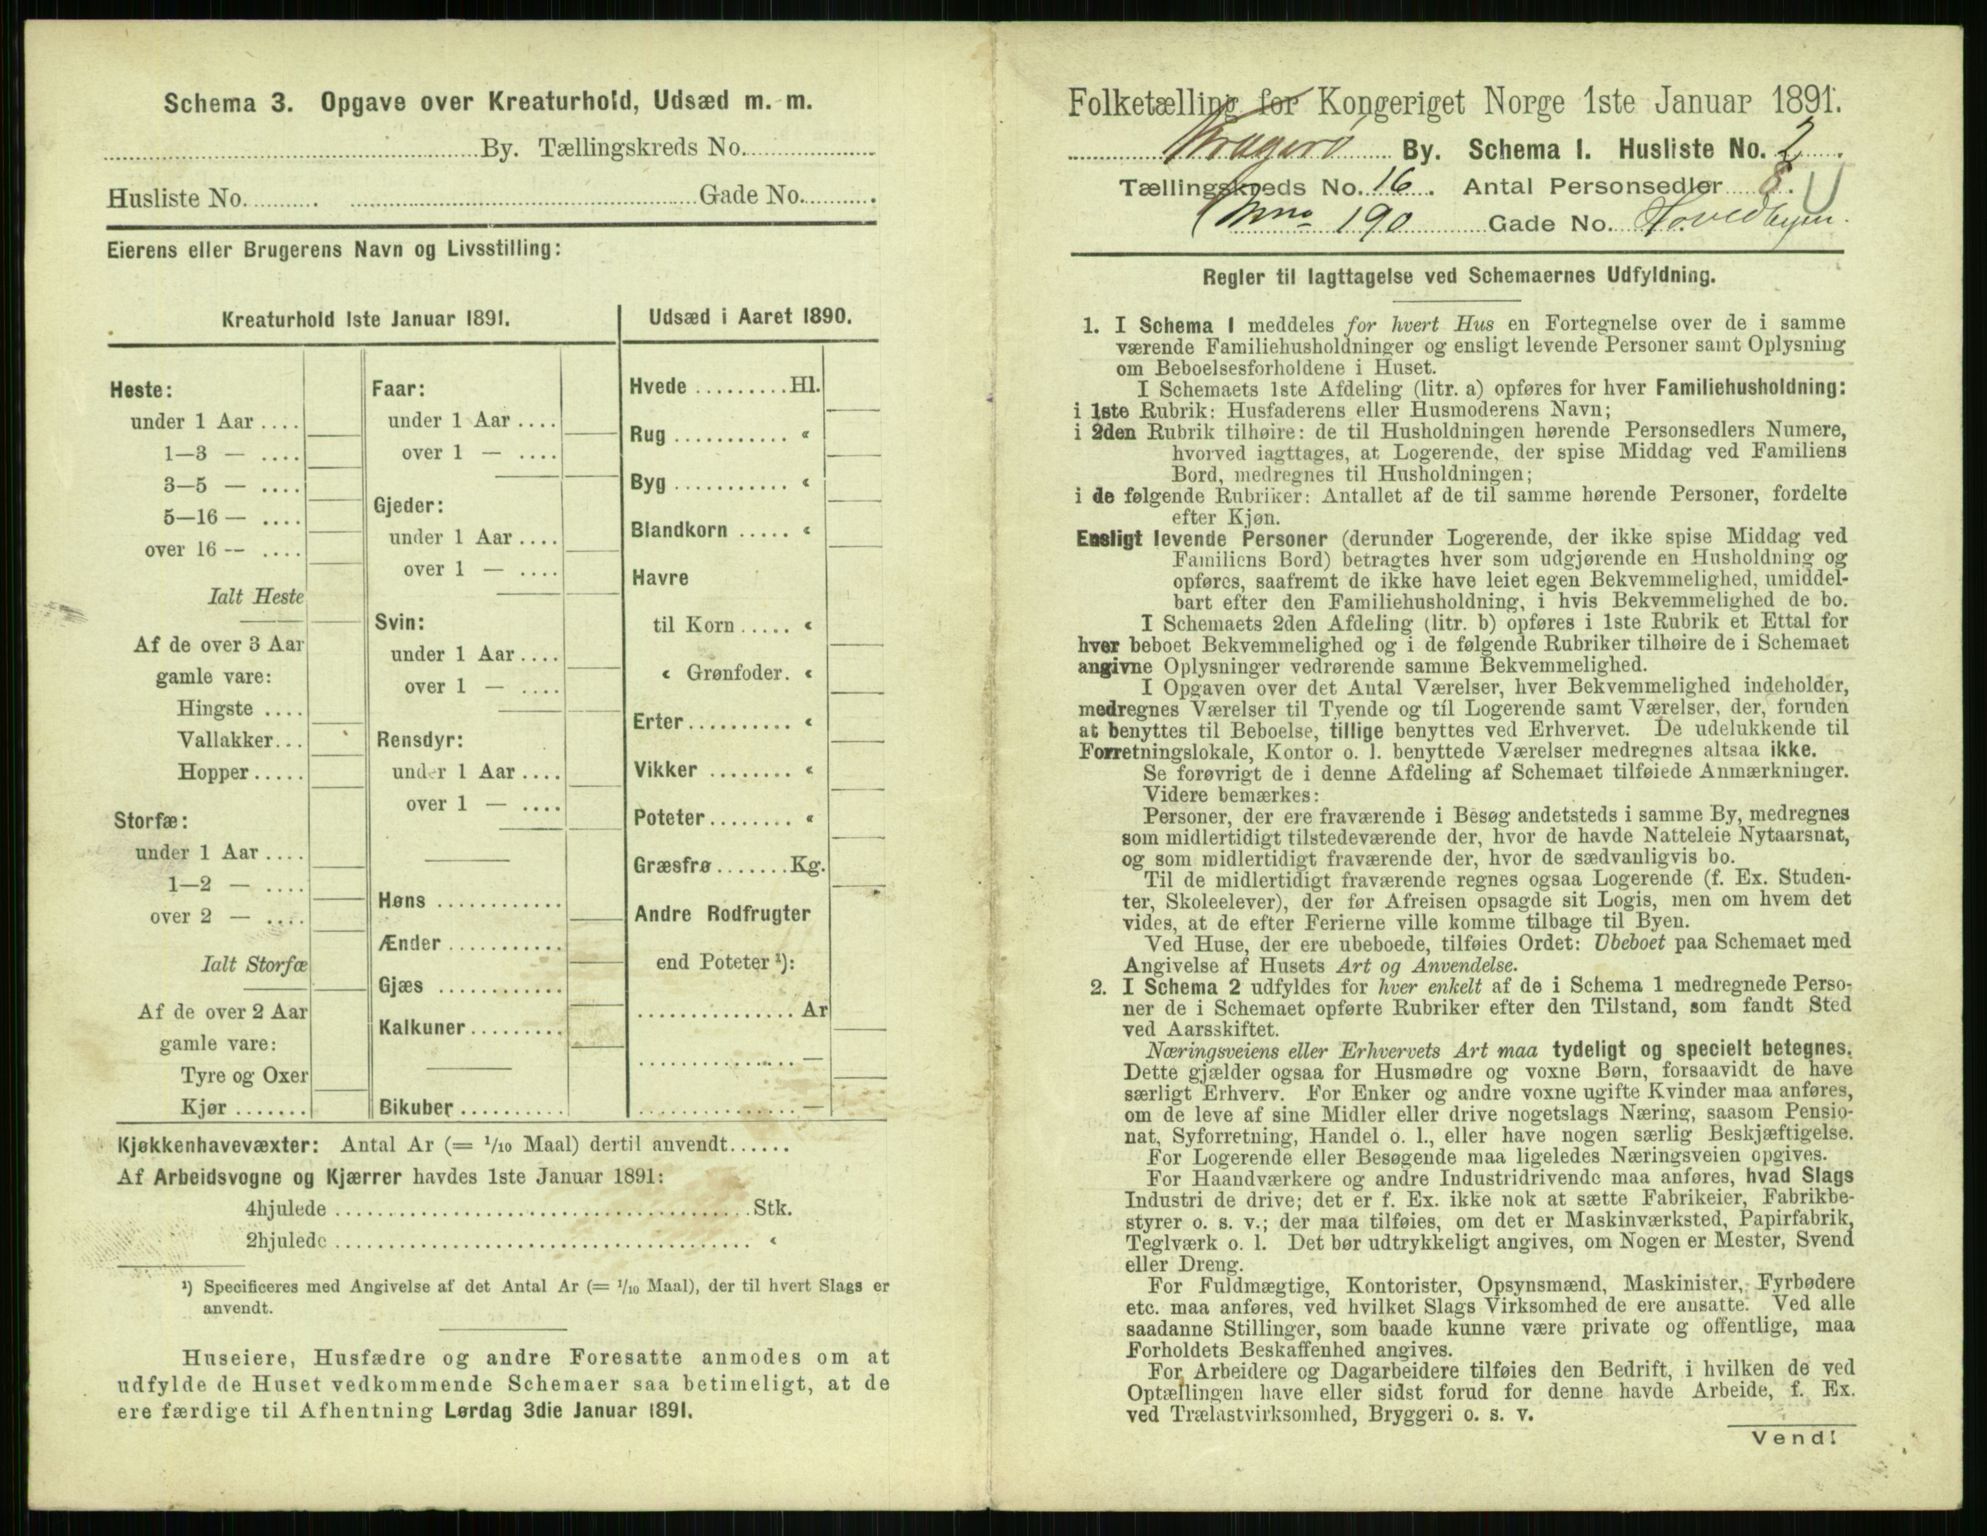 Schema 3. Opgave over Kreaturhold, Udsæd m. m.
By. Tællingskreds No.
Husliste No. Gade No.
Eierens eller Brugerens Navn og Livsstilling:
Kreaturhold 1ste Januar 1891.
Heste:
under 1 Aar ....
1—3 — ....
3—5 — ....
5—16 — ....
over 16 — ....
Ialt Heste
Af de over 3 Aar
gamle vare:
Hingste ....
Vallakker...
Hopper.....
Storfæ:
under 1 Aar ....
1—2 — ....
over 2 — ....
Ialt Storfæ
Af de over 2 Aar
gamle vare:
Tyre og Oxer
Kjør .......
Faar:
under 1 Aar ....
over 1 — ....
Gjeder:
under 1 Aar ....
over 1 — ....
Svin:
under 1 Aar ....
over 1 — ....
Rensdyr:
under 1 Aar ....
over 1 — ....
Høns ............
Ænder...........
Gjæs ............
Kalkuner.........
Bikuber..........
Udsæd i Aaret 1890.
Hvede .........Hl.
Rug ........... «
Byg ........... «
Blandkorn ..... «
Havre
til Korn..... «
« Grønfoder. «
Erter.......... «
Vikker ........ «
Poteter........ «
Græsfrø.......Kg.
Andre Rodfrugter
end Poteter ¹):
............... Ar
............... —
............... —
Kjøkkenhavevæxter: Antal Ar (= 1/10 Maal) dertil anvendt......
Af Arbeidsvogne og Kjærrer havdes 1ste Januar 1891:
4hjulede ........................................Stk.
2hjulede ........................................ «
¹) Specificeres med Angivelse af det Antal Ar (= 1/10 Maal), der til hvert Slags er
anvendt.
Huseiere, Husfædre og andre Foresatte anmodes om at
udfylde de Huset vedkommende Schemaer saa betimeligt, at de
ere færdige til Afhentning Lørdag 3die Januar 1891.
Folketælling for Kongeriget Norge 1ste Januar 1891.
Kragerø By. Schema 1. Husliste No. 2
Tællingskreds No. 16. Antal Personsedler 8.
Mno 190 Gade No. Hovedbyen.
Regler til Iagttagelse ved Schemaernes Udfyldning.
1. I Schema 1 meddeles for hvert Hus en Fortegnelse over de i samme
værende Familiehusholdninger og ensligt levende Personer samt Oplysning
om Beboelsesforholdene i Huset.
I Schemaets 1ste Afdeling (litr. a) opføres for hver Familiehusholdning:
i 1ste Rubrik: Husfaderens eller Husmoderens Navn;
i 2den Rubrik tilhøire: de til Husholdningen hørende Personsedlers Numere,
hvorved iagttages, at Logerende, der spise Middag ved Familiens
Bord, medregnes til Husholdningen;
i de følgende Rubriker: Antallet af de til samme hørende Personer, fordelte
efter Kjøn.
Ensligt levende Personer (derunder Logerende, der ikke spise Middag ved
Familiens Bord) betragtes hver som udgjørende en Husholdning og
opføres, saafremt de ikke have leiet egen Bekvemmelighed, umiddel-
bart efter den Familiehusholdning, i hvis Bekvemmelighed de bo.
I Schemaets 2den Afdeling (litr. b) opføres i 1ste Rubrik et Ettal for
hver beboet Bekvemmelighed og i de følgende Rubriker tilhøire de i Schemaet
angivne Oplysninger vedrørende samme Bekvemmelighed.
I Opgaven over det Antal Værelser, hver Bekvemmelighed indeholder,
medregnes Værelser til Tyende og til Logerende samt Værelser, der, foruden
at benyttes til Beboelse, tillige benyttes ved Erhvervet. De udelukkende til
Forretningslokale, Kontor o. l. benyttede Værelser medregnes altsaa ikke.
Se forøvrigt de i denne Afdeling af Schemaet tilføiede Anmærkninger.
Videre bemærkes:
Personer, der ere fraværende i Besøg andetsteds i samme By, medregnes
som midlertidigt tilstedeværende der, hvor de havde Natteleie Nytaarsnat,
og som midlertidigt fraværende der, hvor de sædvanligvis bo.
Til de midlertidigt fraværende regnes ogsaa Logerende (f. Ex. Studen-
ter, Skoleelever), der før Afreisen opsagde sit Logis, men om hvem det
vides, at de efter Ferierne ville komme tilbage til Byen.
Ved Huse, der ere ubeboede, tilføies Ordet: Ubeboet paa Schemaet med
Angivelse af Husets Art og Anvendelse.
2. I Schema 2 udfyldes for hver enkelt af de i Schema 1 medregnede Perso-
ner de i Schemaet opførte Rubriker efter den Tilstand, som fandt Sted
ved Aarsskiftet.
Næringsveiens eller Erhvervets Art maa tydeligt og specielt betegnes.
Dette gjælder ogsaa for Husmødre og voxne Børn, forsaavidt de have
særligt Erhverv. For Enker og andre voxne ugifte Kvinder maa anføres,
om de leve af sine Midler eller drive nogetslags Næring, saasom Pensio-
nat, Syforretning, Handel o. l., eller have nogen særlig Beskjæftigelse.
For Logerende eller Besøgende maa ligeledes Næringsveien opgives.
For Haandværkere og andre Industridrivende maa anføres, hvad Slags
Industri de drive; det er f. Ex. ikke nok at sætte Fabrikeier, Fabrikbe-
styrer o. s. v.; der maa tilføies, om det er Maskinværksted, Papirfabrik,
Teglværk o. l. Det bør udtrykkeligt angives, om Nogen er Mester, Svend
eller Dreng.
For Fuldmægtige, Kontorister, Opsynsmænd, Maskinister, Fyrbødere
etc. maa anføres, ved hvilket Slags Virksomhed de ere ansatte. Ved alle
saadanne Stillinger, som baade kunne være private og offentlige, maa
Forholdets Beskaffenhed angives.
For Arbeidere og Dagarbeidere tilføies den Bedrift, i hvilken de ved
Optællingen have eller sidst forud for denne havde Arbeide, f. Ex.
ved Trælastvirksomhed, Bryggeri o. s. v.
Vend!